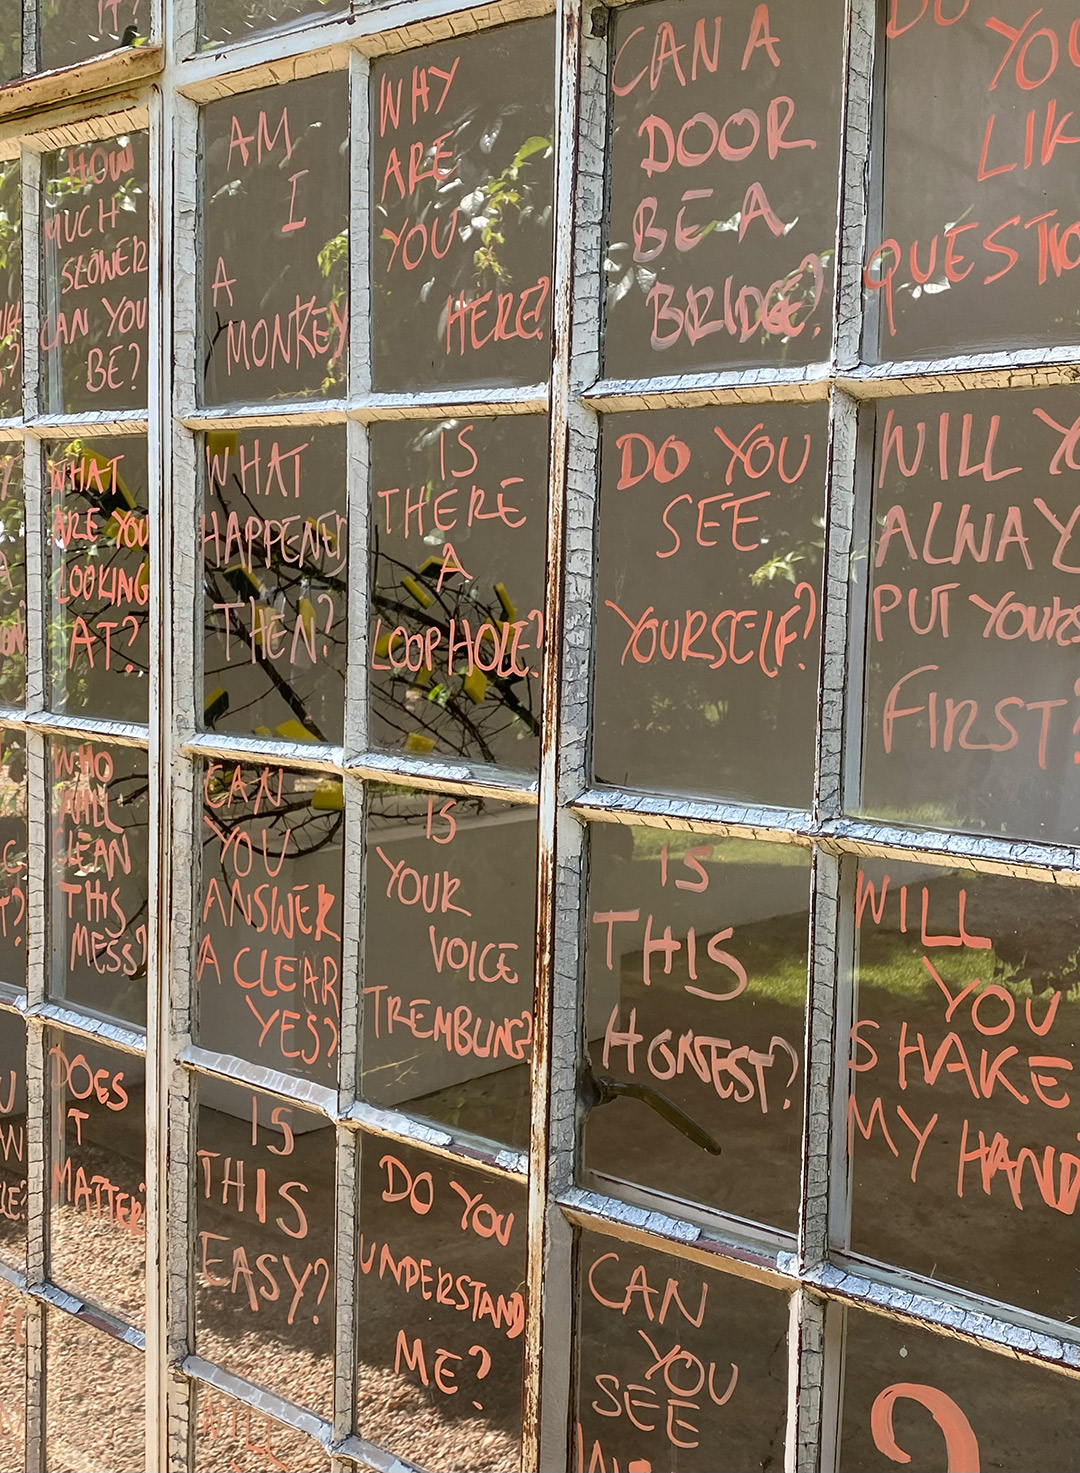 IT?
HOW
MUCH
SLOWER
CAN YOU
BE?
AM
I
A
MONKEY
WHY
ARE
YOU
HERE?
CAN A
DOOR
BE A
BRIDGE?
DO
YOU
LIK
QUESTIO
WHAT
ARE YOU
LOOKING
AT?
WHAT
HAPPENED
THEN?
IS
THERE
A
LOOPHOLE?
DO YOU
SEE
YOURSELF?
WILL YO
ALWAY
PUT YOURS
FIRST?
WHO
WILL
CLEAN
THIS
MESS?
CAN
YOU
ANSWER
A CLEAR
YES?
IS
YOUR
VOICE
TREMBLING?
IS
THIS
HONEST?
WILL
YOU
SHAKE
MY HAND
DOES
IT
MATTER?
IS
THIS
EASY?
DO YOU
UNDERSTAND
ME?
CAN
YOU
SEE
?
WILL